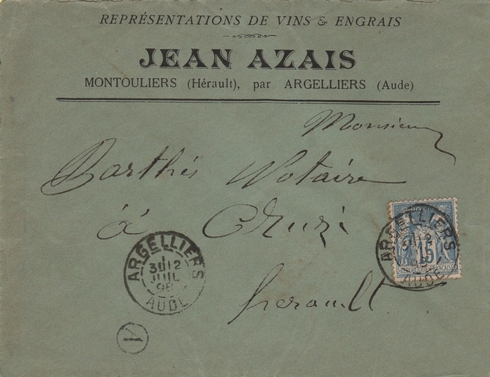 REPRÉSENTATIONS DE VINS & ENGRAIS
JEAN AZAIS
MONTOULIERS (Hérault), par ARGELLIERS (Aude)
Monsieur
Barthés Notaire
à Cruzi
hérault
ARGELLIERS
JUIL
98
AUDE
ARGELLIERS
15
1